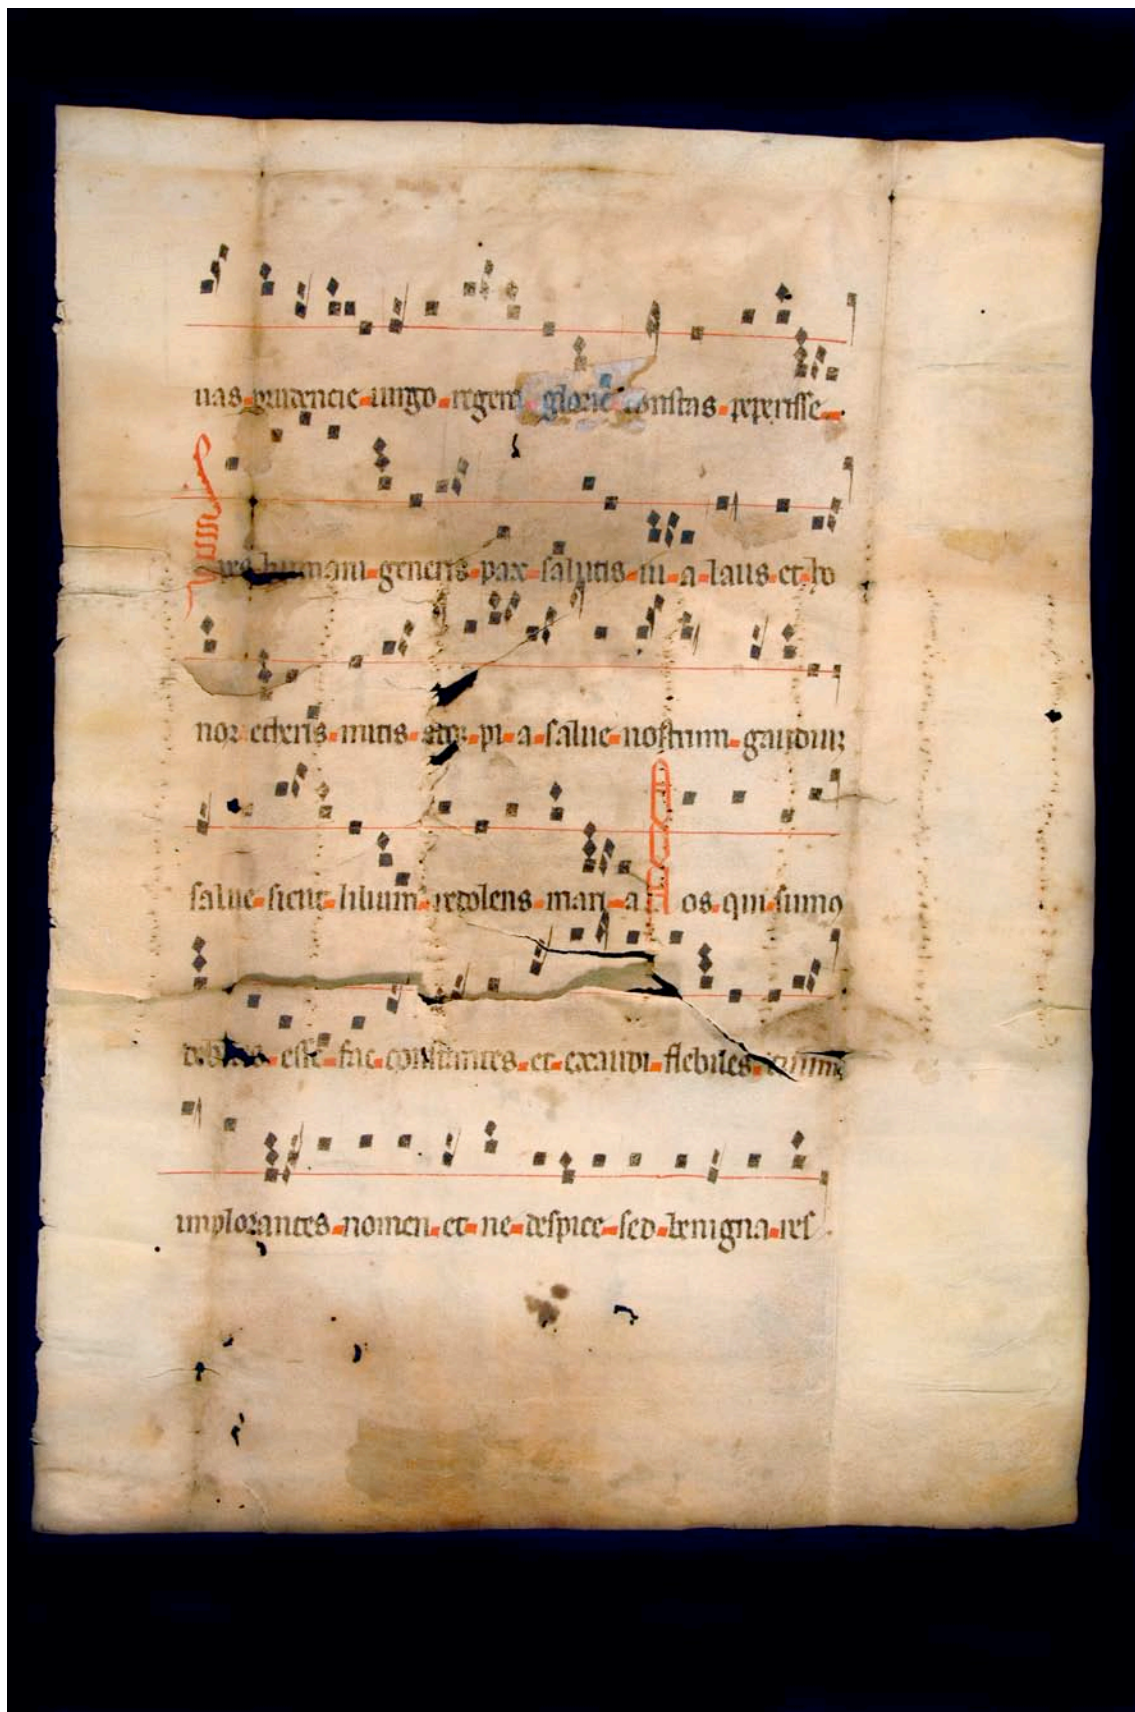 uas prudencie uirgo regem glorie constas peperisse
Spes humani generis pax salutis ui a laus et ho
nor etheris mitis ator pi a salue nostrum gaudium
salue sicut lilium redolens mari a Nos qui sumus
debiles esse fac constantes et exaudi flebiles tuum
implorantes nomen et ne despice sed benigna res